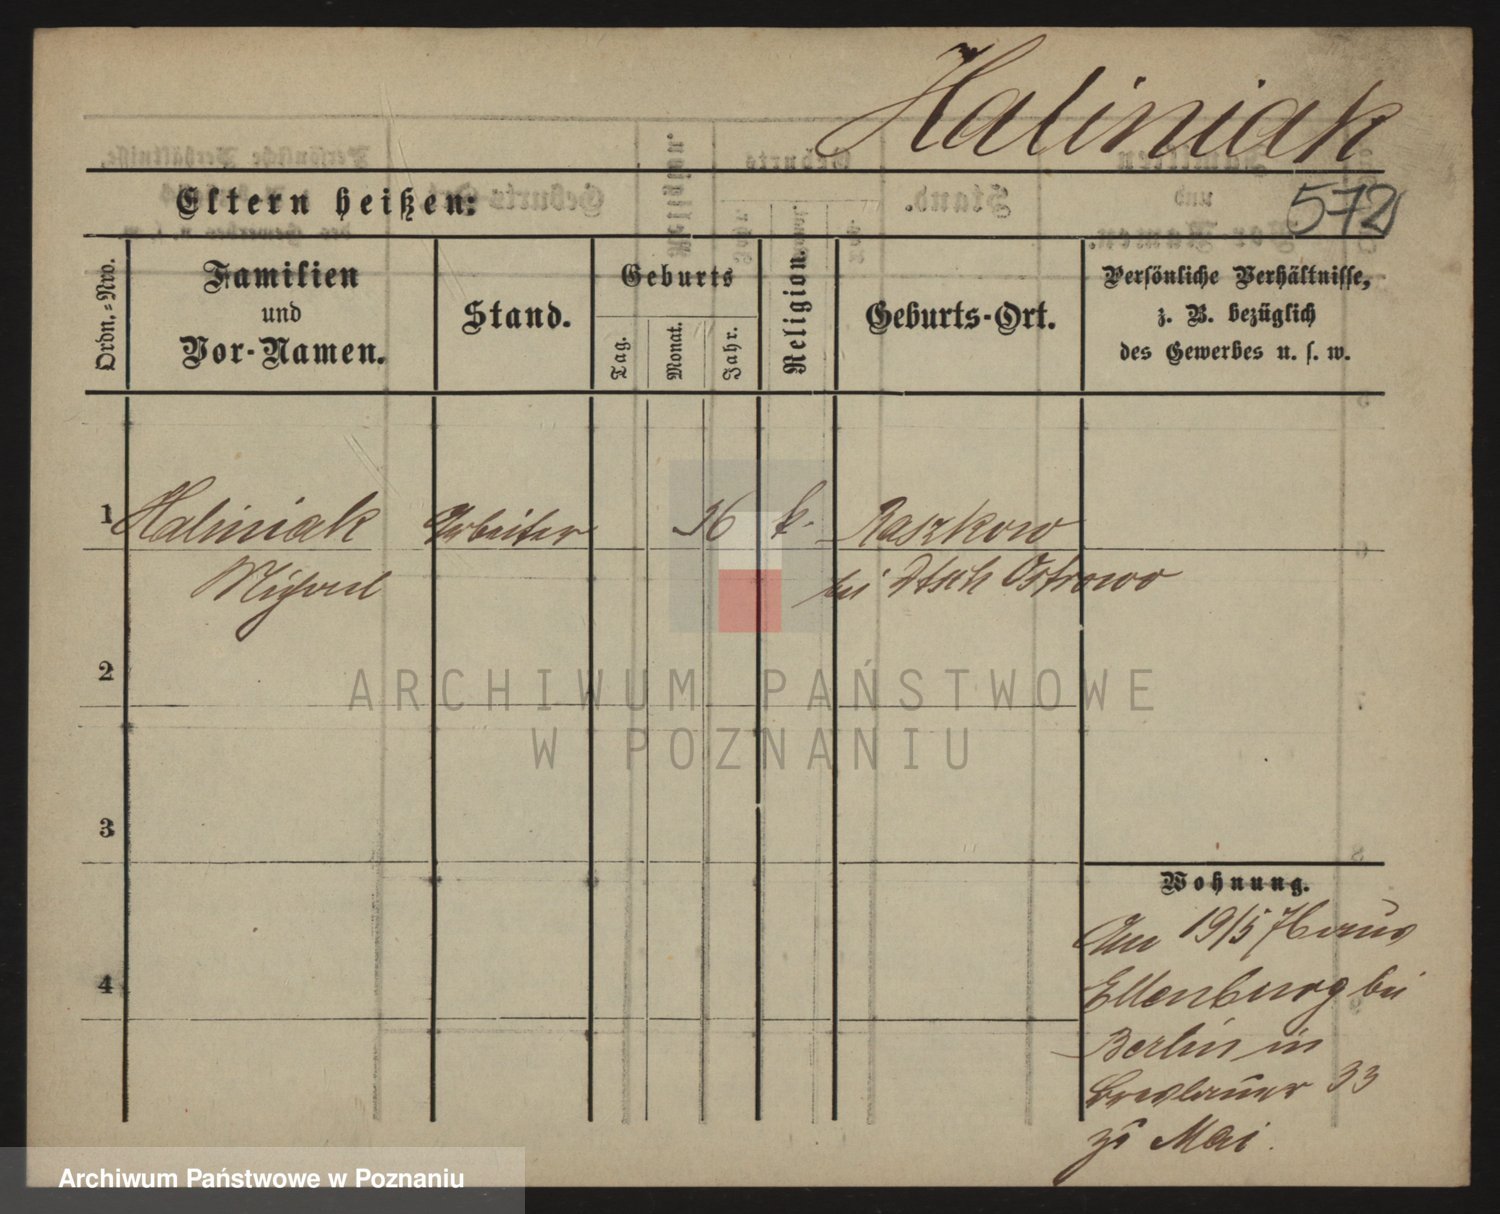 Haliniak
Eltern heißen:
572
Ordn.-Nro.
Familien
und
Vor-Namen.
Stand.
Geburts
Tag.
Monat.
Jahr.
Religion.
Geburts-Ort.
Persönliche Verhältnisse,
z. B. bezüglich
des Gewerbes u. s. w.
1 Haliniak Arbeiter 36 k. Raszkow
bei Ostrowo
2
3
4
Wohnung.
19/5
bei
Berlin in
Breslauer 33
zu Mai.
ARCHIWUM PAŃSTWOWE
W POZNANIU
Archiwum Państwowe w Poznaniu